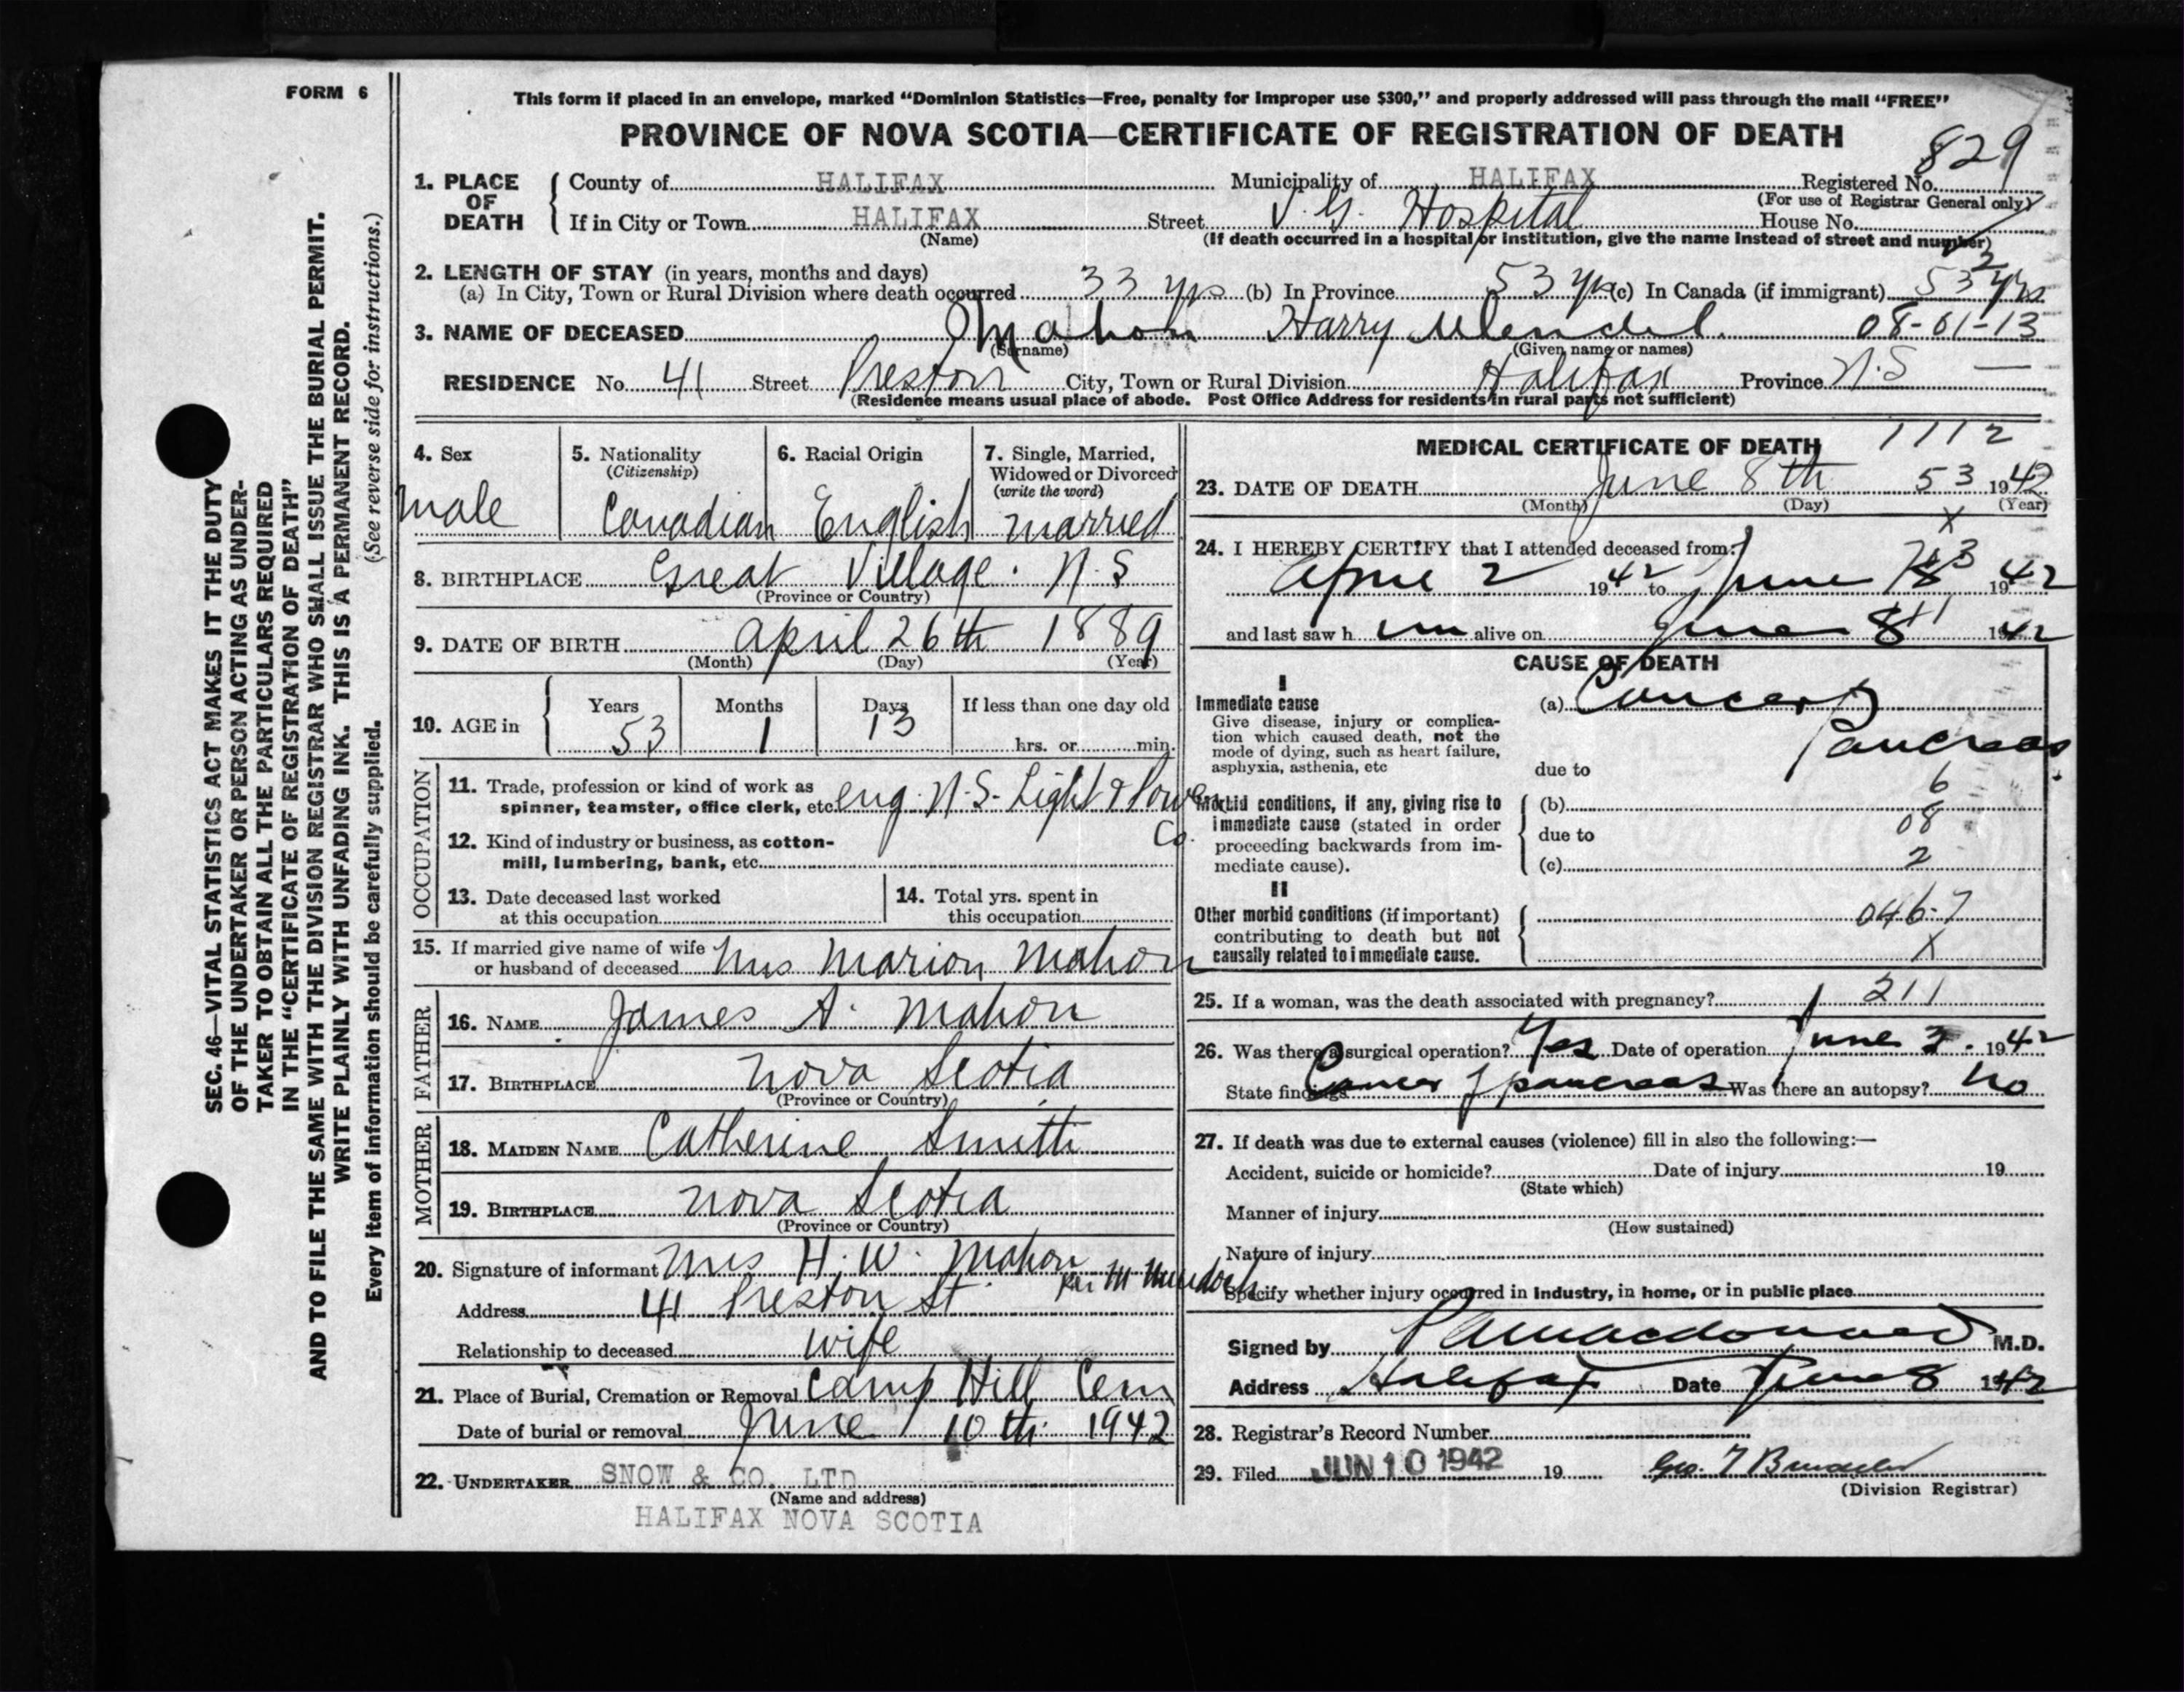 FORM 6
SEC. 46—VITAL STATISTICS ACT MAKES IT THE DUTY
OF THE UNDERTAKER OR PERSON ACTING AS UNDER-
TAKER TO OBTAIN ALL THE PARTICULARS REQUIRED
IN THE "CERTIFICATE OF REGISTRATION OF DEATH"
AND TO FILE THE SAME WITH THE DIVISION REGISTRAR WHO SHALL ISSUE THE BURIAL PERMIT.
WRITE PLAINLY WITH UNFADING INK. THIS IS A PERMANENT RECORD.
Every item of information should be carefully supplied. (See reverse side for instructions.)
This form if placed in an envelope, marked "Dominion Statistics—Free, penalty for improper use $300," and properly addressed will pass through the mail "FREE"
PROVINCE OF NOVA SCOTIA—CERTIFICATE OF REGISTRATION OF DEATH
829
1. PLACE OF DEATH County of HALIFAX Municipality of HALIFAX Registered No.
(For use of Registrar General only)
If in City or Town HALIFAX Street V. G. Hospital House No.
(Name) (If death occurred in a hospital or institution, give the name instead of street and number)
2. LENGTH OF STAY (in years, months and days) 2
(a) In City, Town or Rural Division where death occurred 33 yrs (b) In Province 53 yrs (c) In Canada (if immigrant) 53 yrs
3. NAME OF DECEASED Mahon Harry Wendel 08-01-13
(Surname) (Given name or names)
RESIDENCE No. 41 Street Preston City, Town or Rural Division Halifax Province N.S —
(Residence means usual place of abode. Post Office Address for residents in rural parts not sufficient)
4. Sex
male
5. Nationality
(Citizenship)
Canadian
6. Racial Origin
English
7. Single, Married,
Widowed or Divorced
(write the word)
married
8. BIRTHPLACE Great Village. N.S
(Province or Country)
9. DATE OF BIRTH April 26th 1889
(Month) (Day) (Year)
10. AGE in Years Months Days If less than one day old
53 1 13 hrs. or min.
OCCUPATION
11. Trade, profession or kind of work as
spinner, teamster, office clerk, etc. eng. N.S. Light & Power
Co.
12. Kind of industry or business, as cotton-
mill, lumbering, bank, etc.
13. Date deceased last worked
at this occupation
14. Total yrs. spent in
this occupation
15. If married give name of wife
or husband of deceased Mrs Marion Mahon
FATHER
16. NAME James A. Mahon
17. BIRTHPLACE Nova Scotia
(Province or Country)
MOTHER
18. MAIDEN NAME Catherine Smith
19. BIRTHPLACE Nova Scotia
(Province or Country)
20. Signature of informant Mrs H. W. Mahon
Per M Murdoch
Address 41 Preston St
Relationship to deceased wife
21. Place of Burial, Cremation or Removal Camp Hill Cem
Date of burial or removal June 10th 1942
22. UNDERTAKER SNOW & CO. LTD
(Name and address)
HALIFAX NOVA SCOTIA
MEDICAL CERTIFICATE OF DEATH 1112
23. DATE OF DEATH June 8th 53 1942
(Month) (Day) (Year)
X
24. I HEREBY CERTIFY that I attended deceased from:
April 2 1942 to June 8 1942
and last saw him alive on June 8 1942
CAUSE OF DEATH
I
Immediate cause
Give disease, injury or complica-
tion which caused death, not the
mode of dying, such as heart failure,
asphyxia, asthenia, etc
(a) Cancer of
Pancreas
due to
6
Morbid conditions, if any, giving rise to
immediate cause (stated in order
proceeding backwards from im-
mediate cause).
(b)
08
due to
2
(c)
II
Other morbid conditions (if important)
contributing to death but not
causally related to immediate cause.
046.7
X
25. If a woman, was the death associated with pregnancy? 211
26. Was there a surgical operation? Yes Date of operation June 3 1942
State findings Cancer of pancreas Was there an autopsy? No
27. If death was due to external causes (violence) fill in also the following:—
Accident, suicide or homicide? Date of injury 19
(State which)
Manner of injury
(How sustained)
Nature of injury
Specify whether injury occurred in industry, in home, or in public place
Signed by Macdonald M.D.
Address Halifax Date June 8 1942
28. Registrar's Record Number
29. Filed JUN 10 1942 19 Geo.
(Division Registrar)